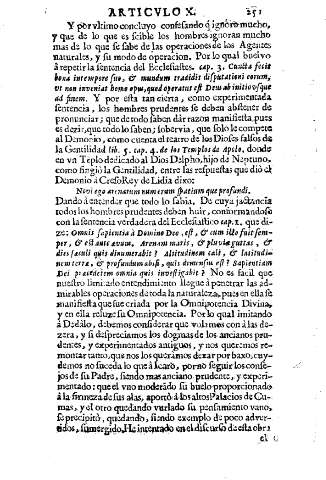 ARTICVLO X. 251
Y por vltimo concluyo confesando q̃ ignoro mucho,
y que de lo que es scible los hombres ignoran mucho
mas de lo que se sabe de las operaciones de los Agentes
naturales, y su modo de operacion. Por lo qual buelvo
à repetir la sentencia del Ecclesiastes. cap. 3. Cuncta fecit
bona in tempore suo, & mundum tradidit disputationi eorum,
vt non inveniat homo opus, quod operatus est Deus ab initio vsque
ad finem. Y por esta tan cierta, como experimentada
sentencia, los hombres prudentes se deben abstener de
pronunciar; que de todo saben dàr razon manifiesta, pues
es dezir, que todo lo saben; sobervia, que solo le compete
al Demonio, como cuenta el teatro de los Dioses falsos de
la Gentilidad lib. 5. cap. 4. de los Templos de Apolo, donde
en vn Teplo dedicado al Dios Delpho, hijo de Neptuno,
como fingiò la Gentilidad, entre las respuestas que diò el
Demonio à Creso Rey de Lidia dixo:
Novi ego arenarum numerum spatium que profundi.
Dando à entender que todo lo sabia. De cuya jactancia
todos los hombres prudentes deben huir, conformandose
con la sentencia verdadera del Ecclesiastico cap. 1. que di-
ze: Omnis sapientia à Domino Deo, est, & cum illo fuit sem-
per, & est ante ævum. Arenam maris, & pluviæ guttas, &
dies sæculi quis dinumerabit? Altitudinem cæli, & latitudi-
nem terræ, & profundum abissi, quis dimensus est? Sapientiam
Dei præcedentem omnia quis investigabit? No es facil que
nuestro limitado entendimiento llegue à penetrar las ad-
mirables operaciones de toda la naturaleza, pues en ella se
manifiesta que fue criada por la Omnipotencia Divina,
y en ella reluze su Omnipotencia. Por lo qual imitando
à Dedalo, debemos considerar que volamos con alas de ze-
zera, y si despreciamos los dogmas de los ancianos pruden-
dentes, y experimentados antiguos, y nos queremos re-
montar tanto, que nos los queramos dexar por baxo, cuy-
demos no suceda lo que à Icaro, por no seguir los conse-
jos de su Padre, siendo mas anciano prudente, y experi-
mentado: que el vno moderado su buelo proporcionado
à la firmeza de sus alas, aportò à los altos Palacios de Cu-
mas, y el otro quedando vurlado su pensamiento vano,
se precipitò, quedando, siendo exemplo de poco adver-
tidos, sumergido. He intentado en el discurso de esta obra
el